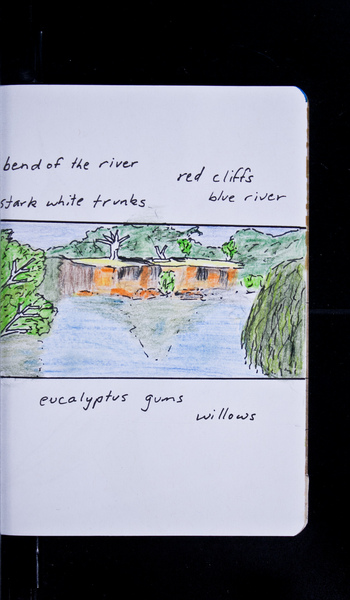 bend of the river
red cliffs
stark white trunks
blue river
eucalyptus gums
willows